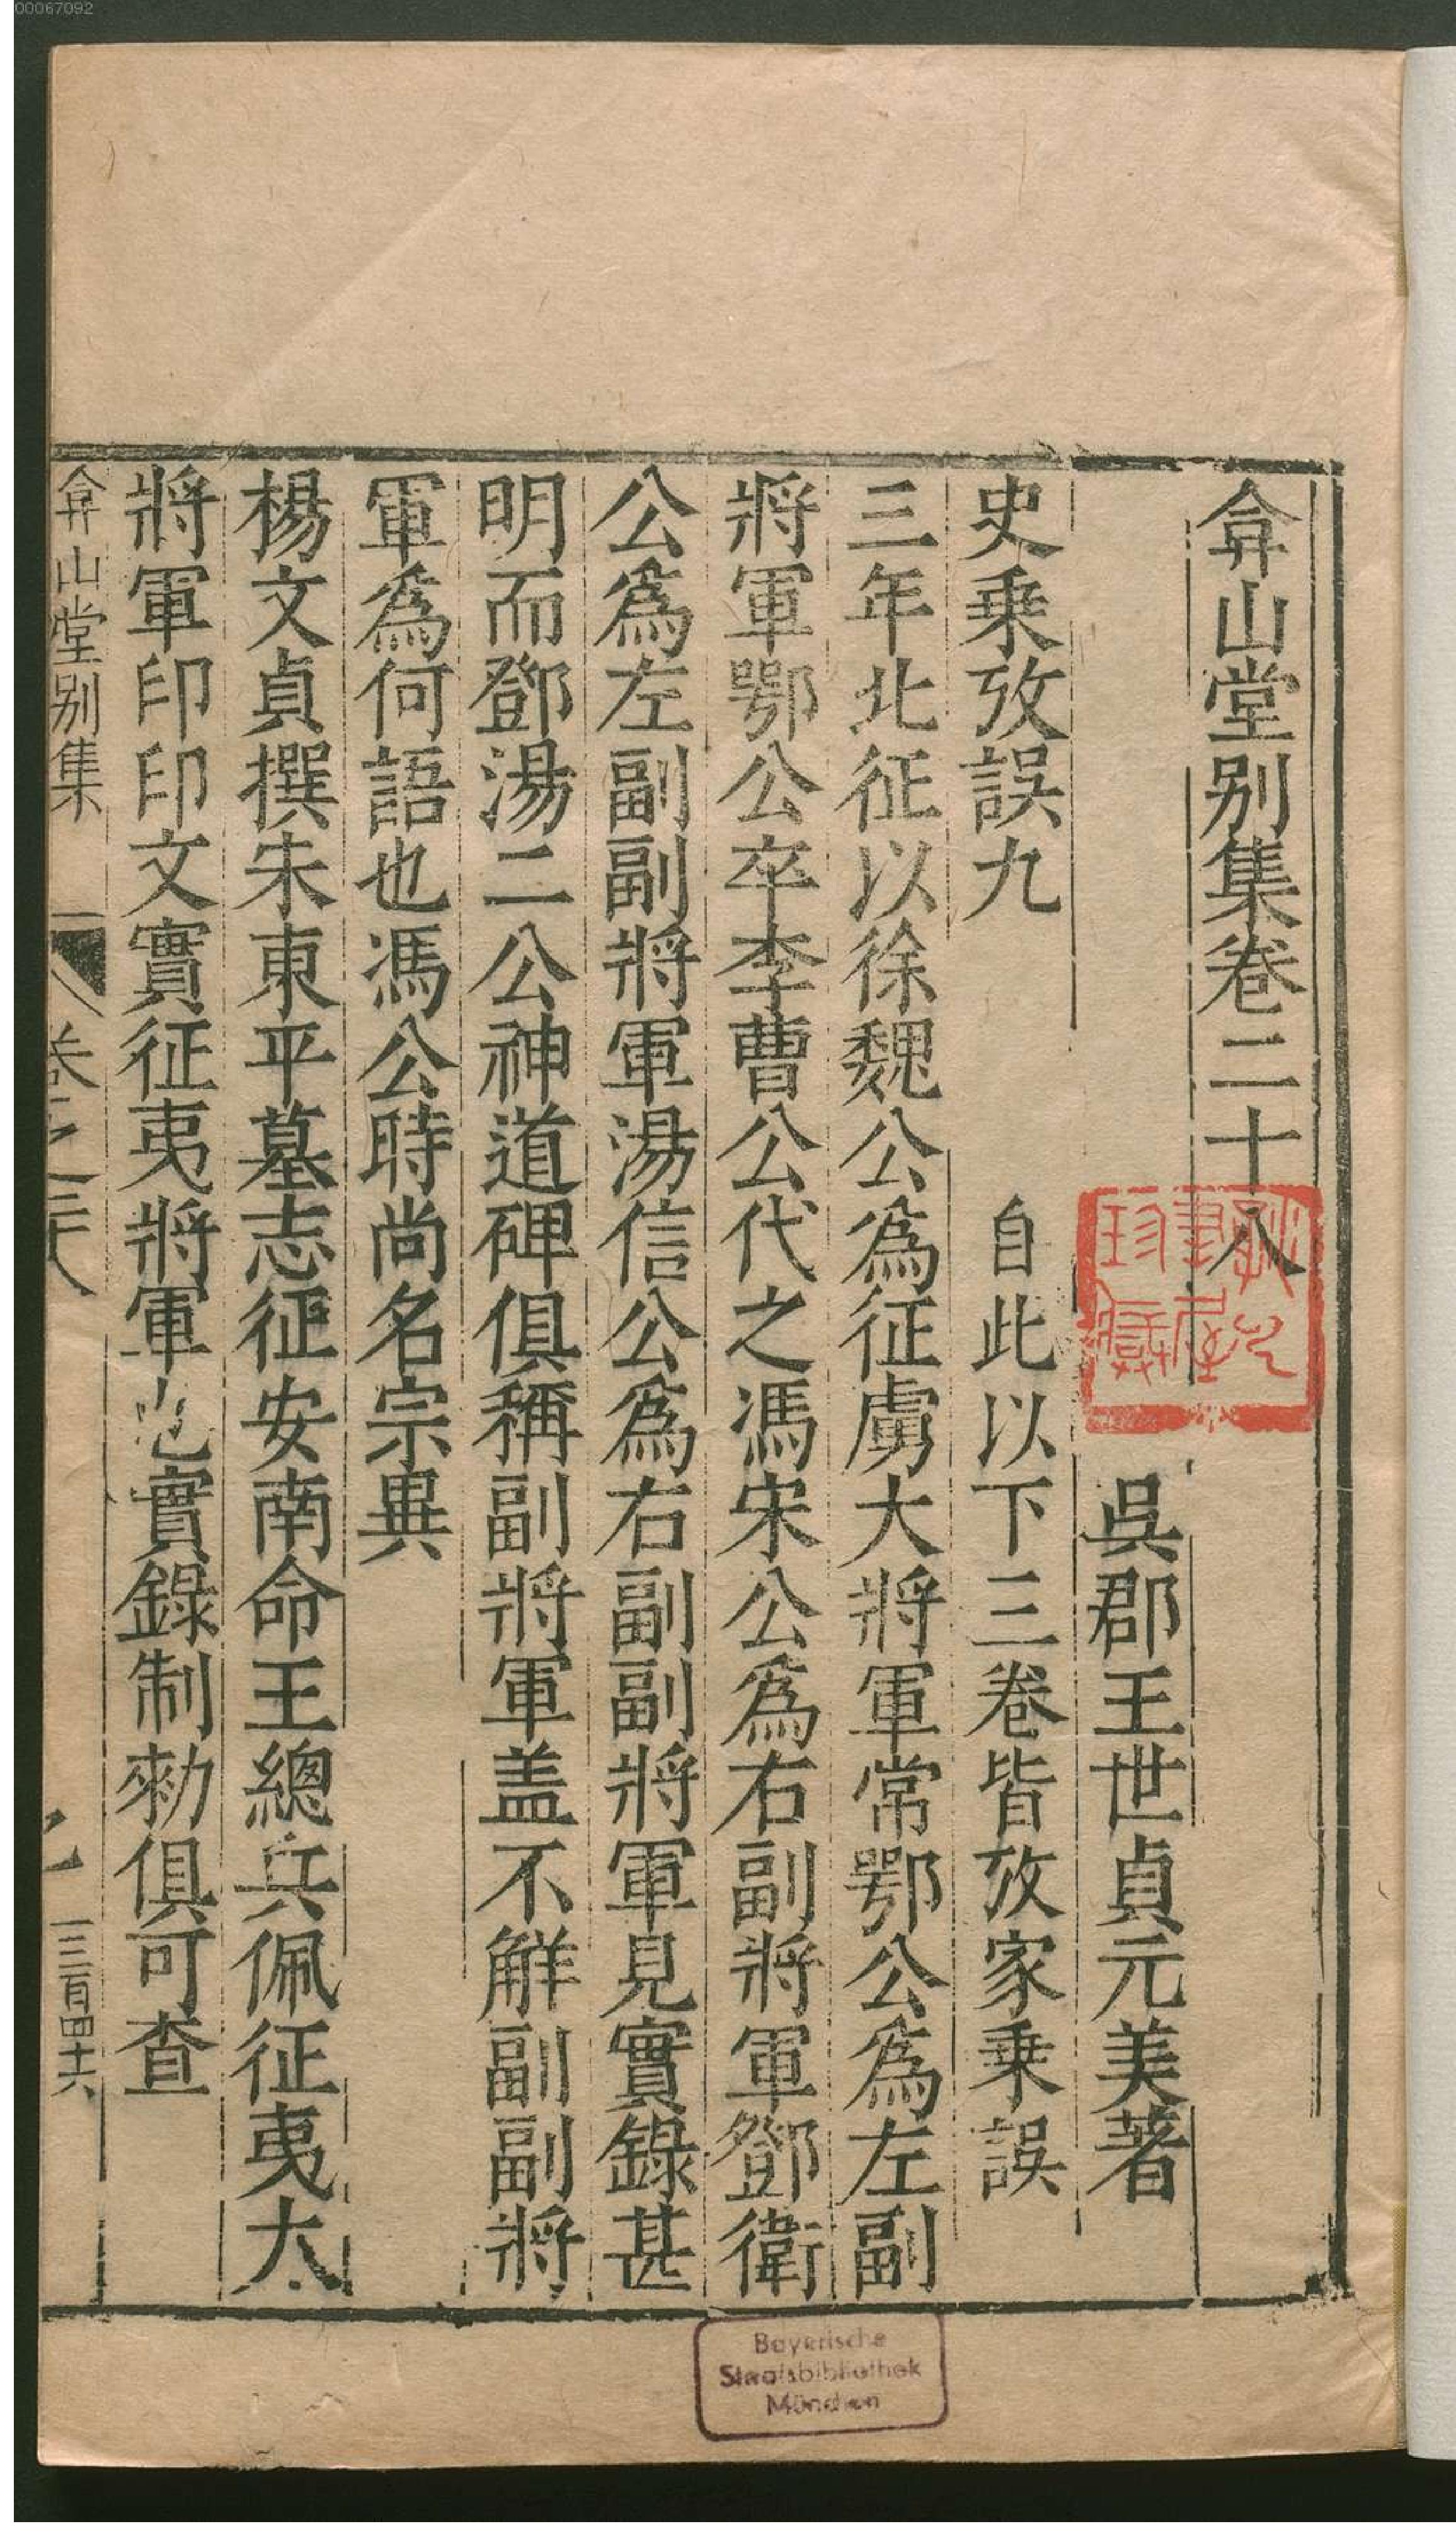 00067092
弇山堂别集卷二十八
吳郡王世貞元美著
史乗攷誤九 自此以下三卷皆攷家乗誤
三年北征以徐魏公爲征虜大將軍常鄂公爲左副
將軍鄂公卒李曹公代之馮宋公爲右副將軍鄧衛
公爲左副副將軍湯信公爲右副副將軍見實錄甚
明而鄧湯二公神道碑俱稱副將軍盖不觧副副將
軍爲何語也馮公時尚名宗異
楊文貞撰朱東平墓志征安南命王總兵佩征夷大
將軍印印文實征夷將軍也實錄制勑俱可查
弇山堂别集
卷之二十八
一
三百四十六
Bayerische
Staatsbibliothek
München